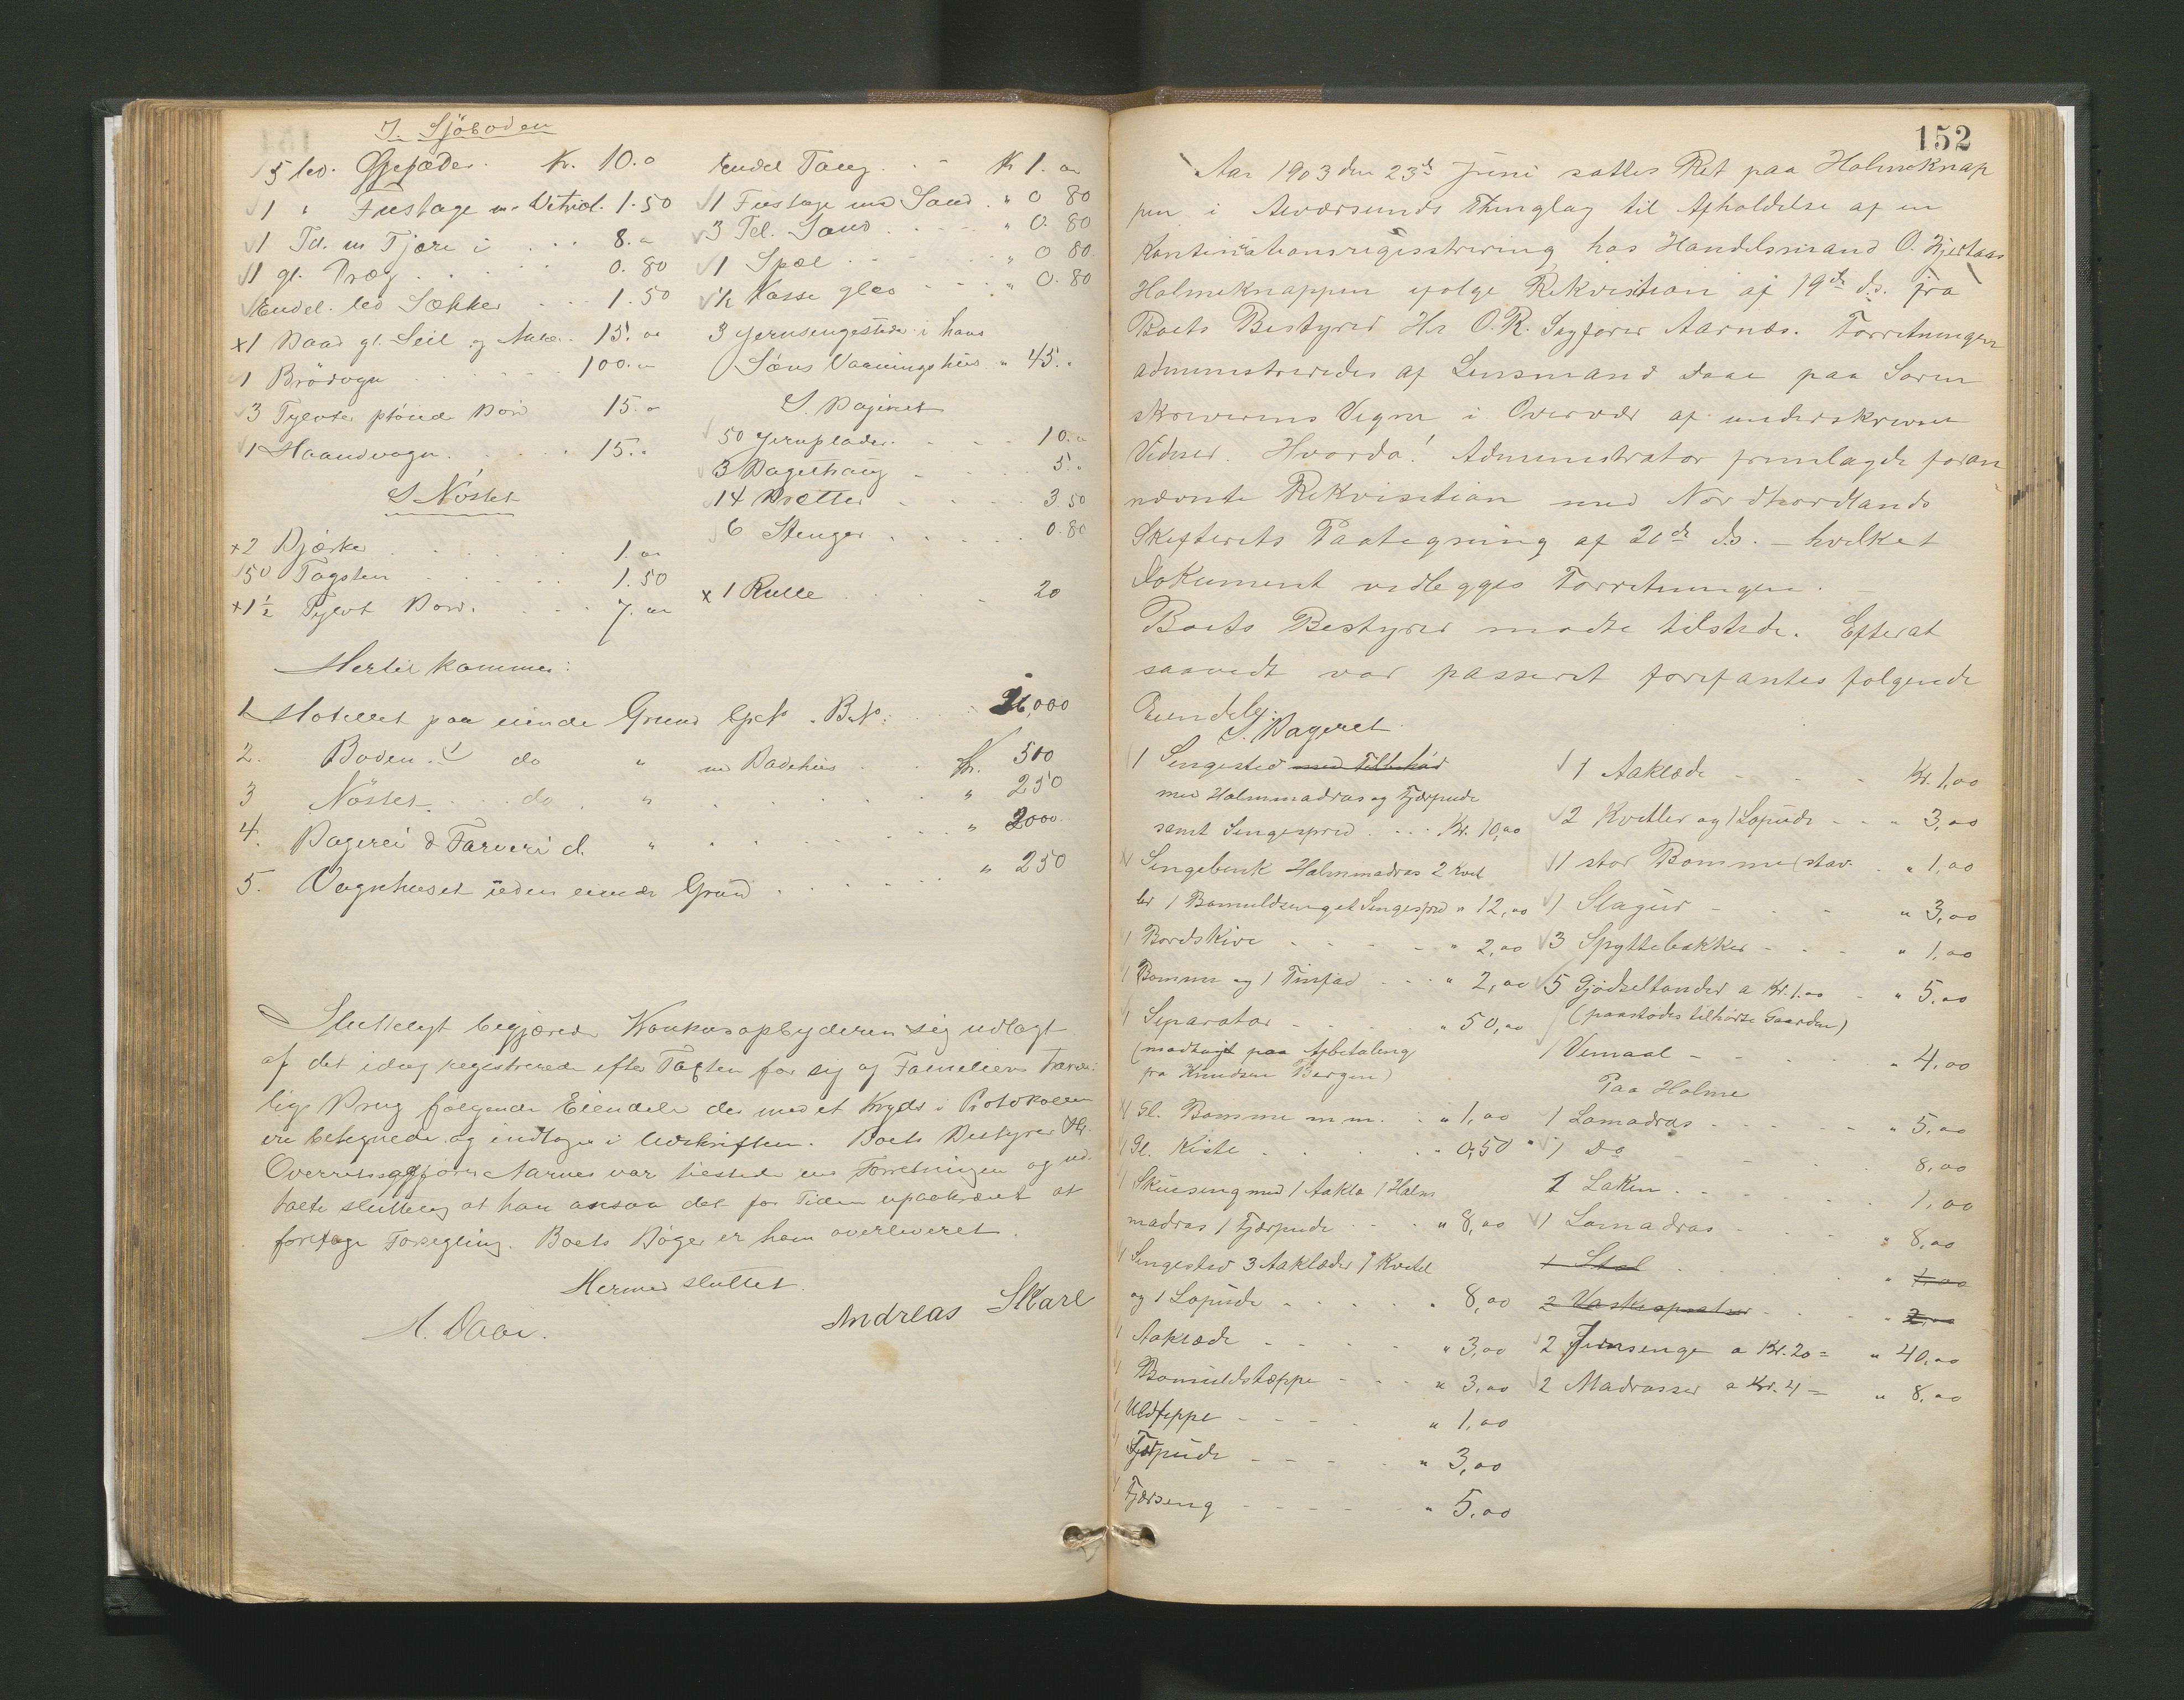 I. Sjöboden
5 led. Ölfæder. Kr. 10.0
1 " Fustage m. Vitriol. 1.50
1 Td. m Tjære i 8.
1 gl. Dræg 0.80
Endel. led Sækker 1.50
x1 Baad gl. Seil og 15.00
1 Brödvogn 100.
3 Tylvter plöiede Bord 15.
1 Haandvogn. 15.
I Nöstet
x2 Bjørker 1.
50 Tagsten 1.50
x1½ Tylvt Bord. 7.
Endel Toug Kr 1.
1 Fustage med Sand " 0 80
3 Td. Sand " 0. 80
1 Spæl " 0 80.
½ Kasse glas " 0.80
3 Jernsengesteder i hans
Søns Vaaningshus " 45.
I. Bageriet
50 Jernplader. 10.
3 Bagertraug 5.
14 Bretter 3 50
6 Stenger 0.80
x 1 Rulle 20
Hertil kommer:
1 Hotellet paa eiende Grund Gr.No. B.No. 26,000
2. Boden. do " m Badehus Kr. 500
3 Nöstet. do. " " 250
4. Bageri & Farveri d. " " 2000.
5. Vognhuset uden eiende Grund " 250
Sluttelig begjærede Konkursopbyderen sig udlagt
af det idag registrerede efter Taxten for sig og Familiens tarve-
lige Brug følgende Eiendele der med et Kryds i Protokollen
ere betegnede og indtages i Udskriften. Boets Bestyrer Hr.
Overretssagfører Aarnes var tilstede under Forretningen og ud-
talte sluttelig at han ansaa det for Tiden upaakrævet at
foretage Forsegling. Boets Bøger er ham overleveret.
Hermed sluttet.
A. Daae. Andreas Skare
152
Aar 1903 den 23de Juni sattes Ret paa Holmeknap
pen i Alværsunds Thinglag til Afholdelse af en
Kontinuationsregistrering hos Handelsmand O. Hjertaas
Holmeknappen ifølge Rekvisition af 19de ds. fra
Boets Bestyrer Hr O.R. Sagfører Aarnes. Forretningen
administreredes af Lensmand Daae paa Soren
skriverens Vegne i Overvær af underskrevne
Vidner. Hvorda! Administrator fremlagde foran
nævnte Rekvisition med Nordhordlands
Skifterets Paategning af 20de ds. – hvilket
Dokument vedlegges Forretningen. –
Boets Bestyrer mødte tilstede. Efterat
saavidt var passeret forefantes følgende
Eiendele:
I. Bageriet.
1 Sengested med Tilbehør
med Halmmadras og Fjærpude
samt Sengespred Kr. 10,00
Sengebenk Halmmadras 2 Kvit
ler 1 Bomuldsunget Sengespred " 12,00
1 Bordskive " 2,00
1 Bomme og 1 Tinfad " 2,00
1 Separator " 50,00
(modtaget paa Afbetaling
fra Knudsen Bergen)
1 Gl. Bomme m.m. " 1,00
1 Gl. Kiste " 0,50
1 Skuvseng med 1 Aaklæ 1 Halm
madras 1 Fjærpude " 8,00
1 Sengested 3 Aaklæder 1 Kvitel
og 1 Lopude " 8,00
1 Aaklæde " 3,00
1 Bomuldstæppe " 3,00
1 Uldteppe " 1,00
1 Fjærpude " 3,00
1 Fjærseng " 5,00
1 Aaklæde Kr. 1,00
2 Kvitler og 1 Lopude " 3,00
1 stor Bomme (stav " 1,00
1 Slagur " 3,00
3 Spyttebakker " 1,00
5 Gjødseltønder a Kr. 1.00 " 5.00
(paastodes tilhøre Gaarden)
1 Vemaal " 4,00
Paa Holme
1 Lomadras " 5,00
1 Do 8,00
1 Laken 1,00
1 Lomadras " 8,00
1 Stol " 1,00
2 Vaskeapsatser " 2,00
2 Jernsenge a Kr. 20= " 40,00
2 Madrasser a Kr. 4= " 8,00